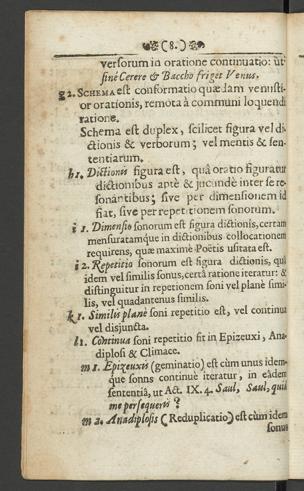 (8.)
versorum in oratione continuatio: ut
sinè Cerere & Baccho friget Venus.
g 2. SCHEMA est conformatio quædam venusti-
or orationis, remota à communi loquendi
ratione.
Schema est duplex, scilicet figura vel di-
ctionis & verborum; vel mentis & sen-
tentiarum.
h 1. Dictionis figura est, quâ oratio figuratur
dictionibus aptè & jucundè inter se re-
sonantibus; sive per dimensionem id
fiat, sive per repetitionem sonorum.
i 1. Dimensio sonorum est figura dictionis, certam
mensuratamque in dictionibus collocationem
requirens, quæ maximè Poëtis usitata est.
i 2. Repetitio sonorum est figura dictionis, quâ
idem vel similis sonus, certâ ratione iteratur: &
distinguitur in repetionem soni vel planè simi-
lis, vel quadantenus similis.
k 1. Similis planè soni repetitio est, vel continua
vel disjuncta.
l 1. Continua soni repetitio fit in Epizeuxi, Ana-
diplosi & Climace.
m 1. Epizeuxis (geminatio) est cùm unus idem-
que sonns continuè iteratur, in eâdem
sententiâ, ut Act. IX. 4. Saul, Saul, quid
me persequeris?
m 2. Anadiplosis (Reduplicatio) est cùm idem
sonus